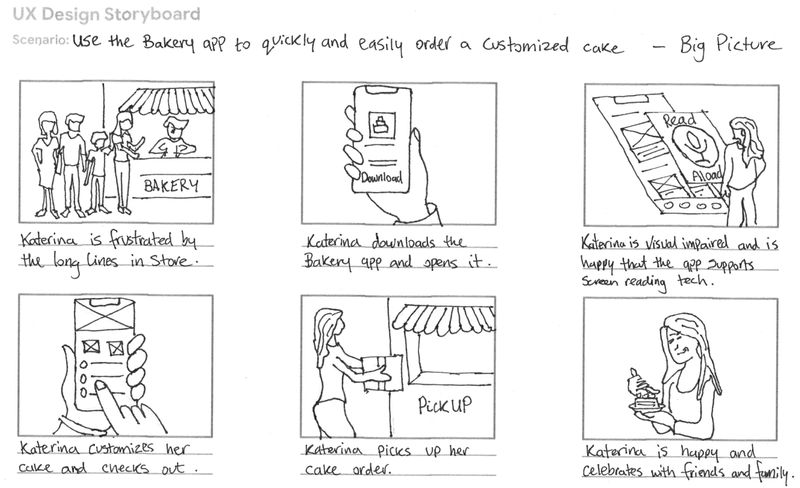 UX Design Storyboard
Scenario: Use the Bakery app to quickly and easily order a customized cake – Big Picture
BAKERY
Download
Read
Aload
Katerina is frustrated by
the long lines in Store.
Katerina downloads the
Bakery app and opens it.
Katerina is visual impaired and is
happy that the app supports
Screen reading tech.
PickUP
Katerina customizes her
cake and checks out.
Katerina picks up her
cake order.
Katerina is happy and
celebrates with friends and family.